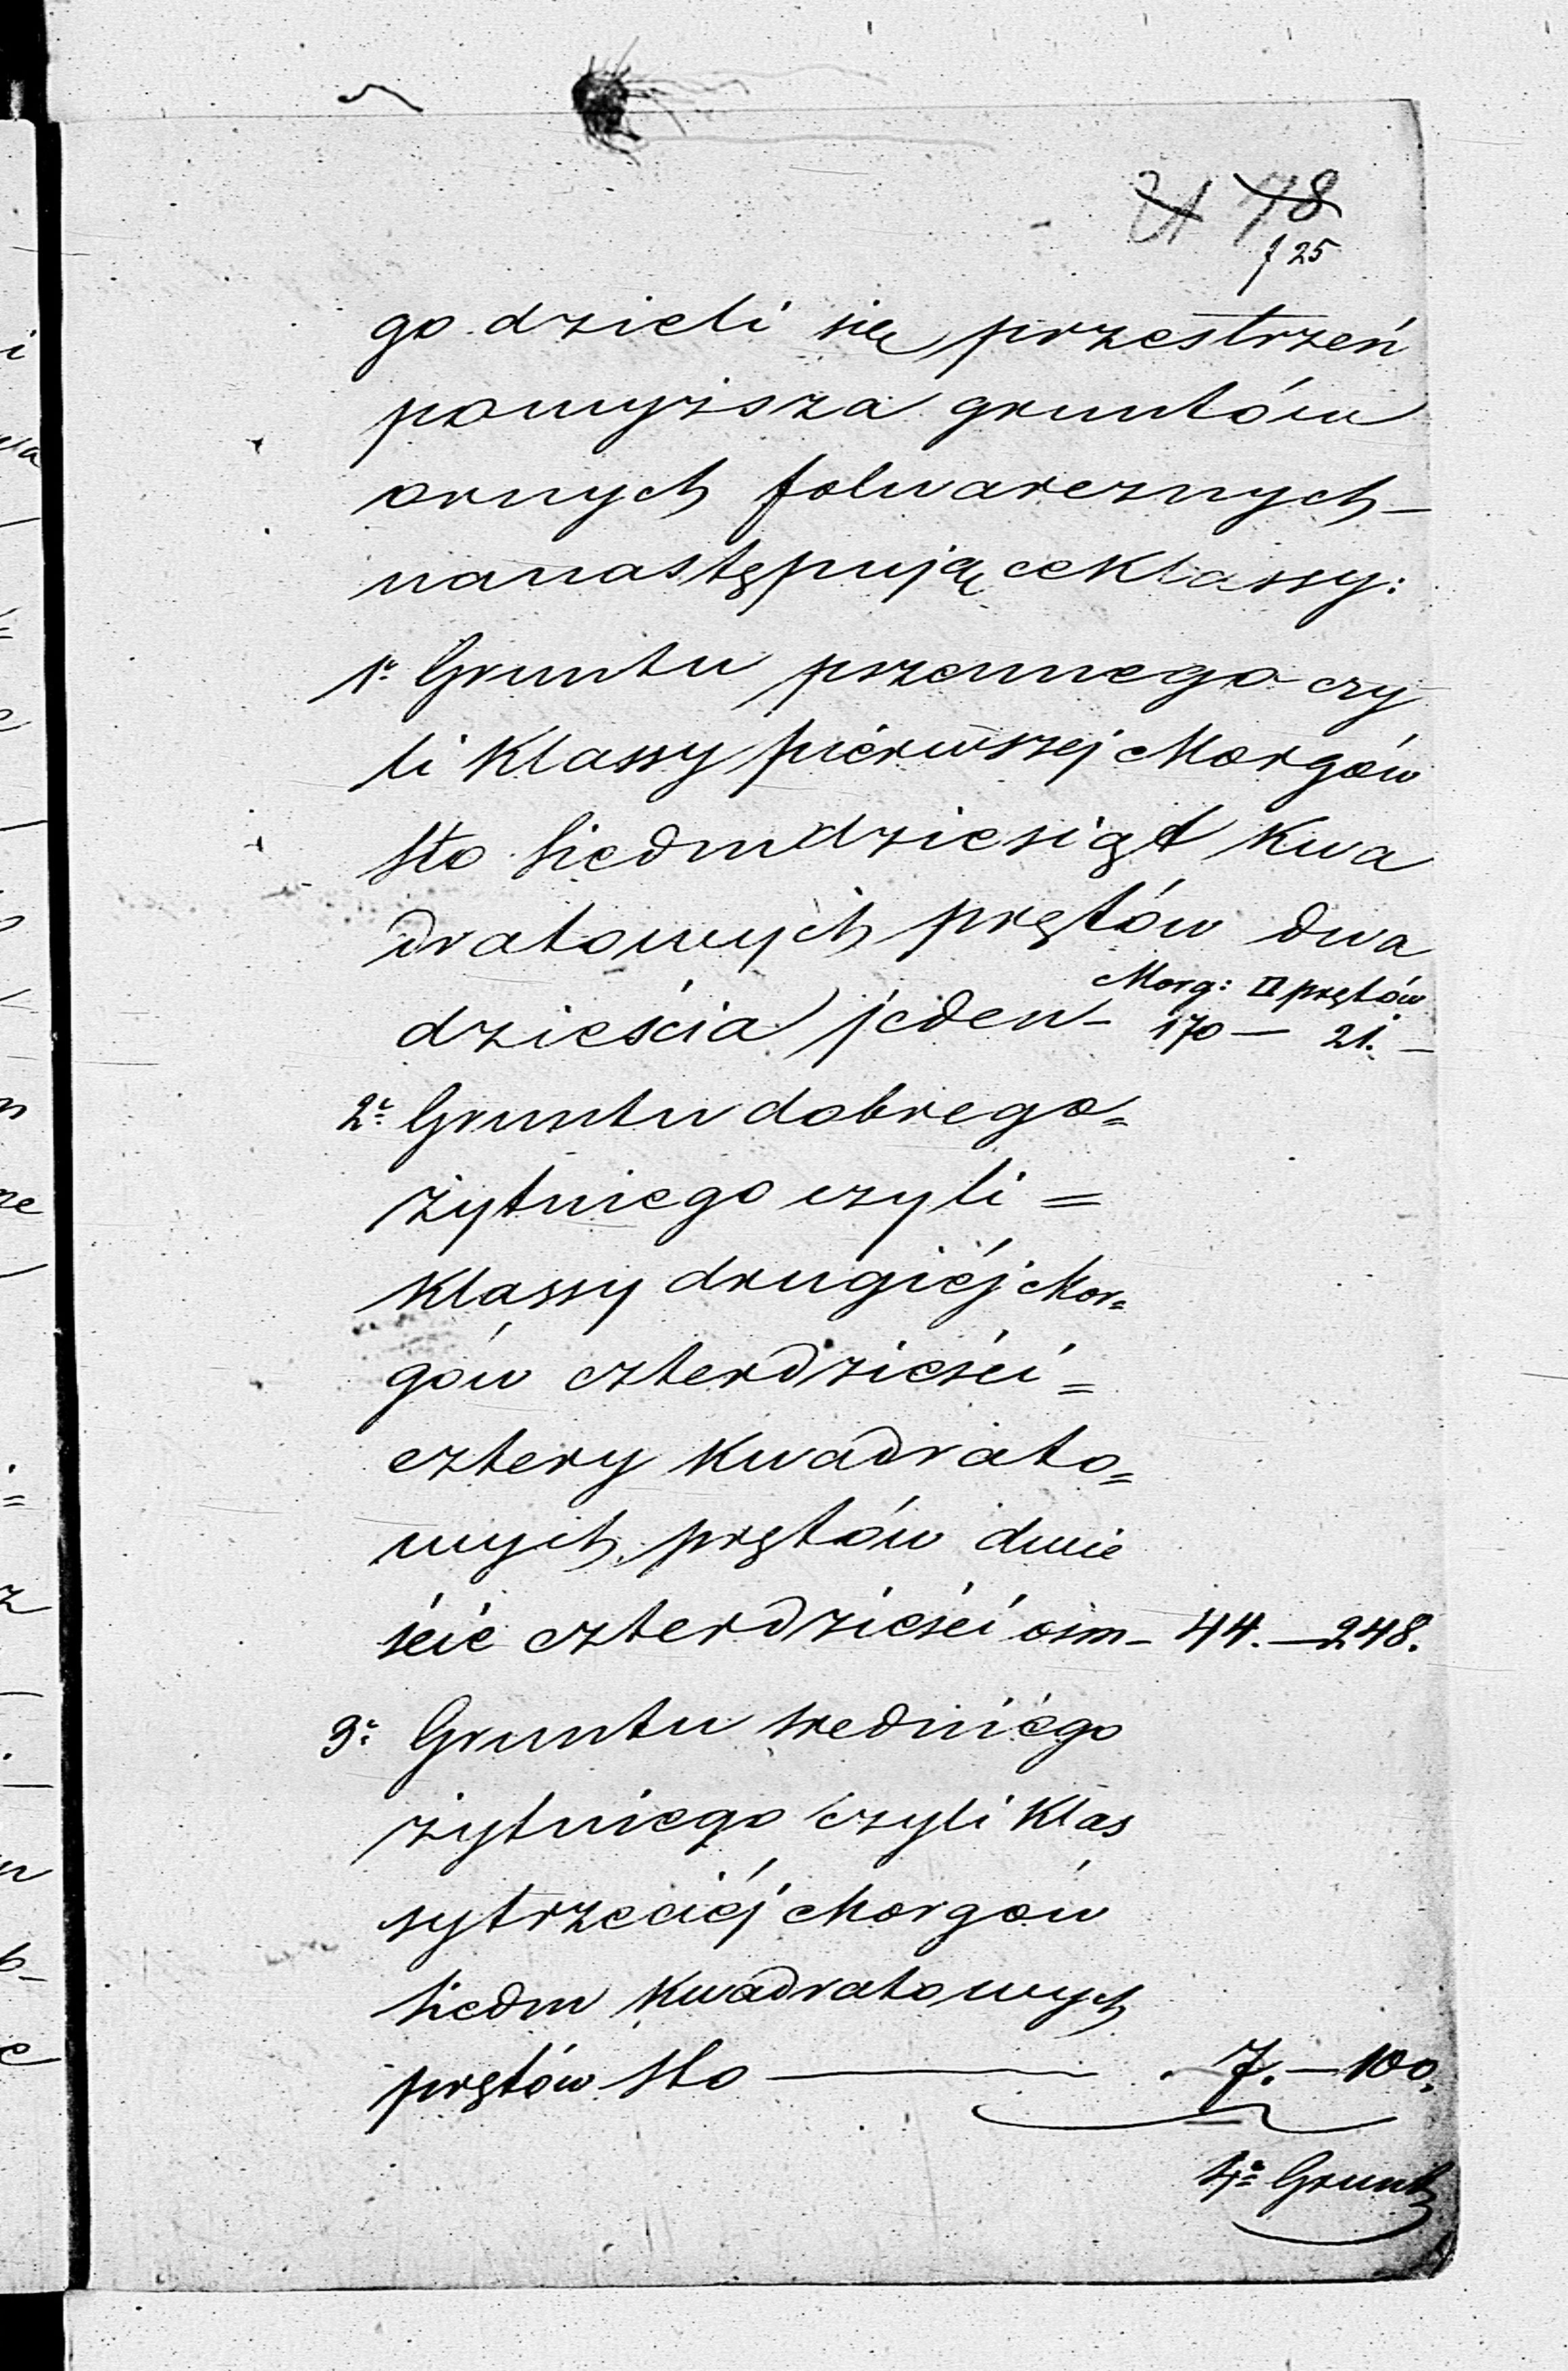 21 78
f 25
go dzieli się przestrzeń
powyższa gruntów
ornych folwarcznych –
na następujące Klassy:
1º Gruntu pszennego czy
li Klassy pierwszej Morgów
sto siedmdziesiąt Kwa
dratowych prętów dwa
Morg: □ prętów
dzieścia jeden – 170 — 21. –
2º Gruntu dobrego =
żytniego czyli =
Klassy drugiéj Mor=
gów czterdzieści =
cztery Kwadrato=
wych prętów dwie
ście czterdzieści ośm – 44. — 248.
3º Gruntu średniégo
żytniego czyli Klas
sy trzeciéj Morgów
siedm Kwadratowych
prętów sto — . 7. — 100.
4º Grunt